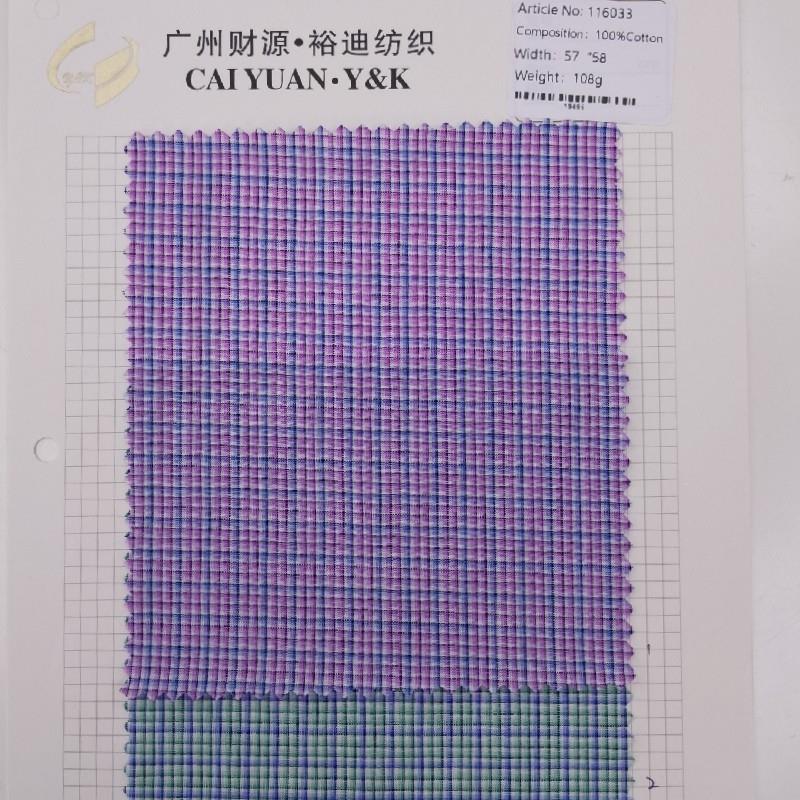 广州财源•裕迪纺织
CAI YUAN•Y&K
Article No: 116033
Composition: 100%Cotton
Width: 57 "58
Weight: 108g
2